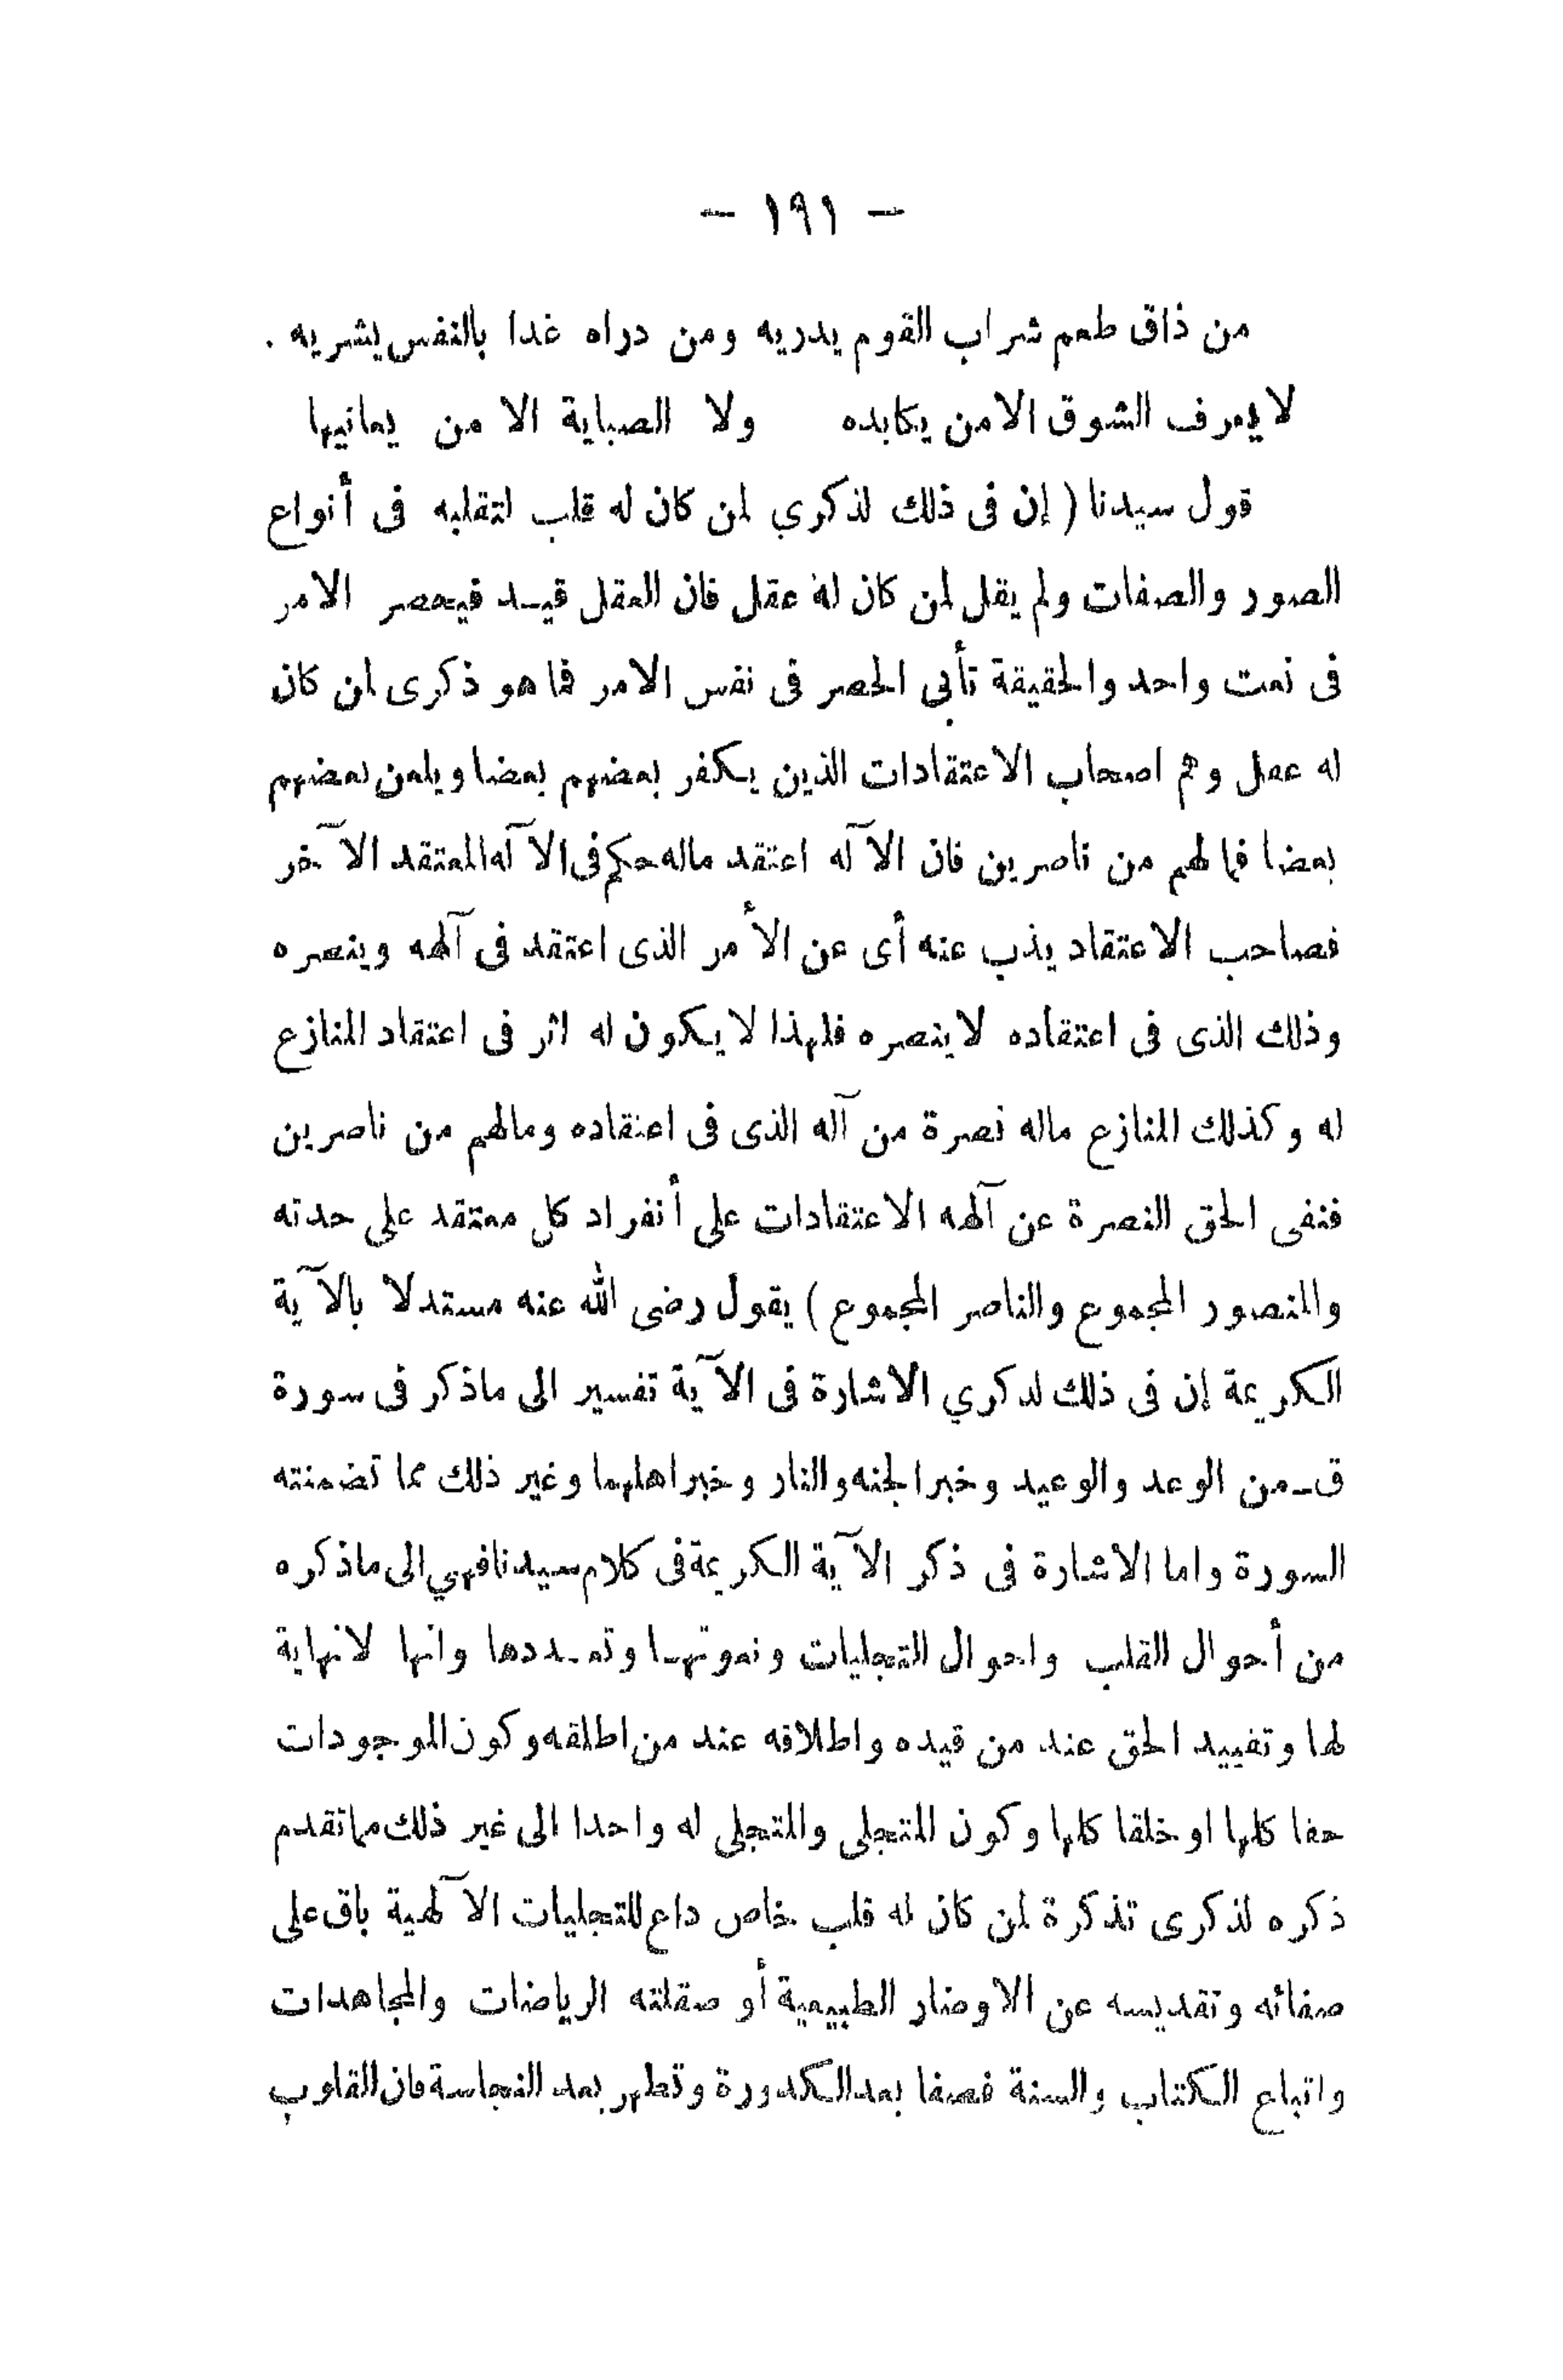 — ١٩١ —
من ذاق طعم شراب القوم يدريه ومن دراه غدا بالنفس يشريه .
لا يعرف الشوق الا من يكابده ولا الصباية الا من يعانيها
قول سيدنا ( إن فى ذلك لذكري لمن كان له قلب لتقلبه فى أنواع
الصور والصفات ولم يقل لمن كان له عقل فان العقل قيـد فيحصر الامر
فى نعت واحد والحقيقة تأبى الحصر فى نفس الامر فما هو ذكرى لمن كان
له عقل وهم اصحاب الاعتقادات الذين يكفر بعضهم بعضا ويلعن بعضهم
بعضا فما لهم من ناصرين فان الآله اعتقد ماله حكم فى الآله المعتقد الآخر
فصاحب الاعتقاد يذب عنه أى عن الأمر الذى اعتقد فى آلهه وينصره
وذلك الذى فى اعتقاده لا ينصره فلهذا لا يكون له اثر فى اعتقاد المنازع
له وكذلك المنازع ماله نصرة من آله الذى فى اعتقاده ومالهم من ناصرين
فنفى الحق النصرة عن آلهه الاعتقادات على أنفراد كل معتقد على حدته
والمنصور المجموع والناصر المجموع ) يقول رضى الله عنه مستدلا بالآية
الكريمة إن فى ذلك لدكري الاشارة فى الآية تفسير الى ماذكر فى سورة
ق ـ من الوعد والوعيد وخبر الجنه والنار وخبر اهلهما وغير ذلك مما تضمنته
السورة واما الاشارة فى ذكر الآية الكريمة فى كلام سيدنا فهي الى ماذكره
من أحوال القلب واحوال التجليات ونعوتهـا وتعـددها وانها لانهاية
لها وتقييد الحق عند من قيده واطلاقه عند من اطلقه وكون الموجودات
حقا كلها او خلقا كلها وكون المتجلى والمتجلى له واحدا الى غير ذلك مما تقدم
ذكره لذكرى تذكرة لمن كان له قلب خاص داع للتجليات الآلهية باق على
صفائه وتقديسه عن الاوضار الطبيعية أو صقلته الرياضات والمجاهدات
واتباع الكتاب والسنة فصفا بعد الكدورة وتطهر بعد النجاسة فان القلوب